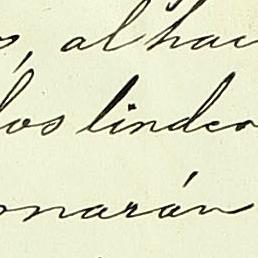 s, al hac
los lindero
onarán